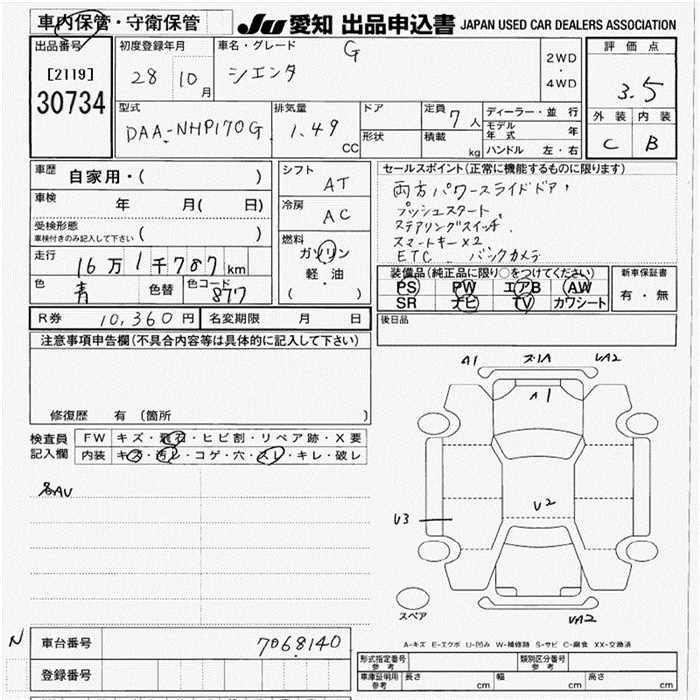 車内保管・守衛保管
JU 愛知 出品申込書 JAPAN USED CAR DEALERS ASSOCIATION
出品番号
[2119]
30734
初度登録年月
28 10月
車名・グレード
G
シエンタ
2WD
・
4WD
評価点
3.5
外装 内装
C B
型式
DAA-NHP170G
排気量
1.49 CC
ドア
形状
定員 7人
積載 kg
ディーラー・並行
モデル年式 年
ハンドル 左・右
車歴 自家用・( )
車検 年 月( 日)
受検形態
車検付きのみ記入して下さい ( )
走行 16万1千787km
色 青 色替 色コード 877
シフト AT
冷房 AC
燃料
ガソリン
軽・油
( )
セールスポイント(正常に機能するものに限ります)
両方パワースライドドア,
プッシュスタート,
ステアリングスイッチ,
スマートキー×2
ETC バックカメラ
装備品(純正品に限り○をつけてください)
PS PW エアB AW
SR ナビ TV カワシート
新車保証書
有・無
R券 10,360円 名変期限 月 日
後日品
注意事項申告欄(不具合内容等は具体的に記入して下さい)
修復歴 有 〔箇所 〕
検査員記入欄
FW キズ・飛石・ヒビ割・リペア跡・X要
内装 キズ・汚レ・コゲ・穴・スレ・キレ・破レ
各AU
A1 ズ1A UA2
A1
U2
U3
スペア
UA2
A-キズ E-エクボ U-凹み W-補修跡 S-サビ C-腐食 XX-交換済
N
車台番号 7068140
登録番号
形式指定番号 参考
類別区分番号 参考
車庫証明用 参考
長さ cm 幅 cm 高さ cm